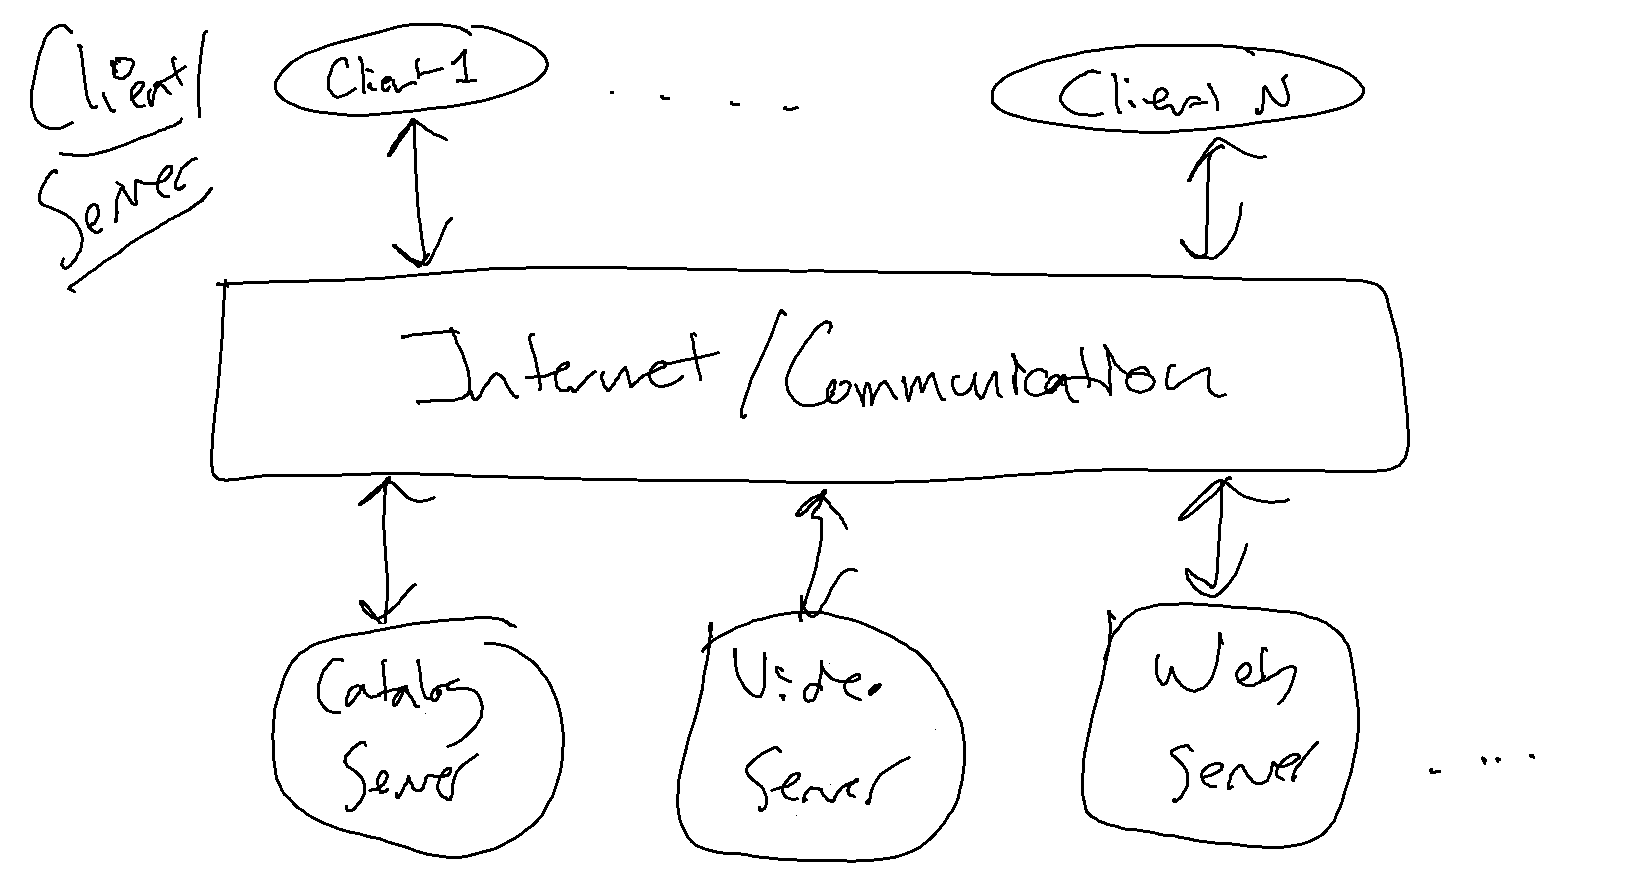 Client/
Server
Client 1 . . . . Client N
Internet/Communication
Catalog
Server
Video
Server
Web
Server
....